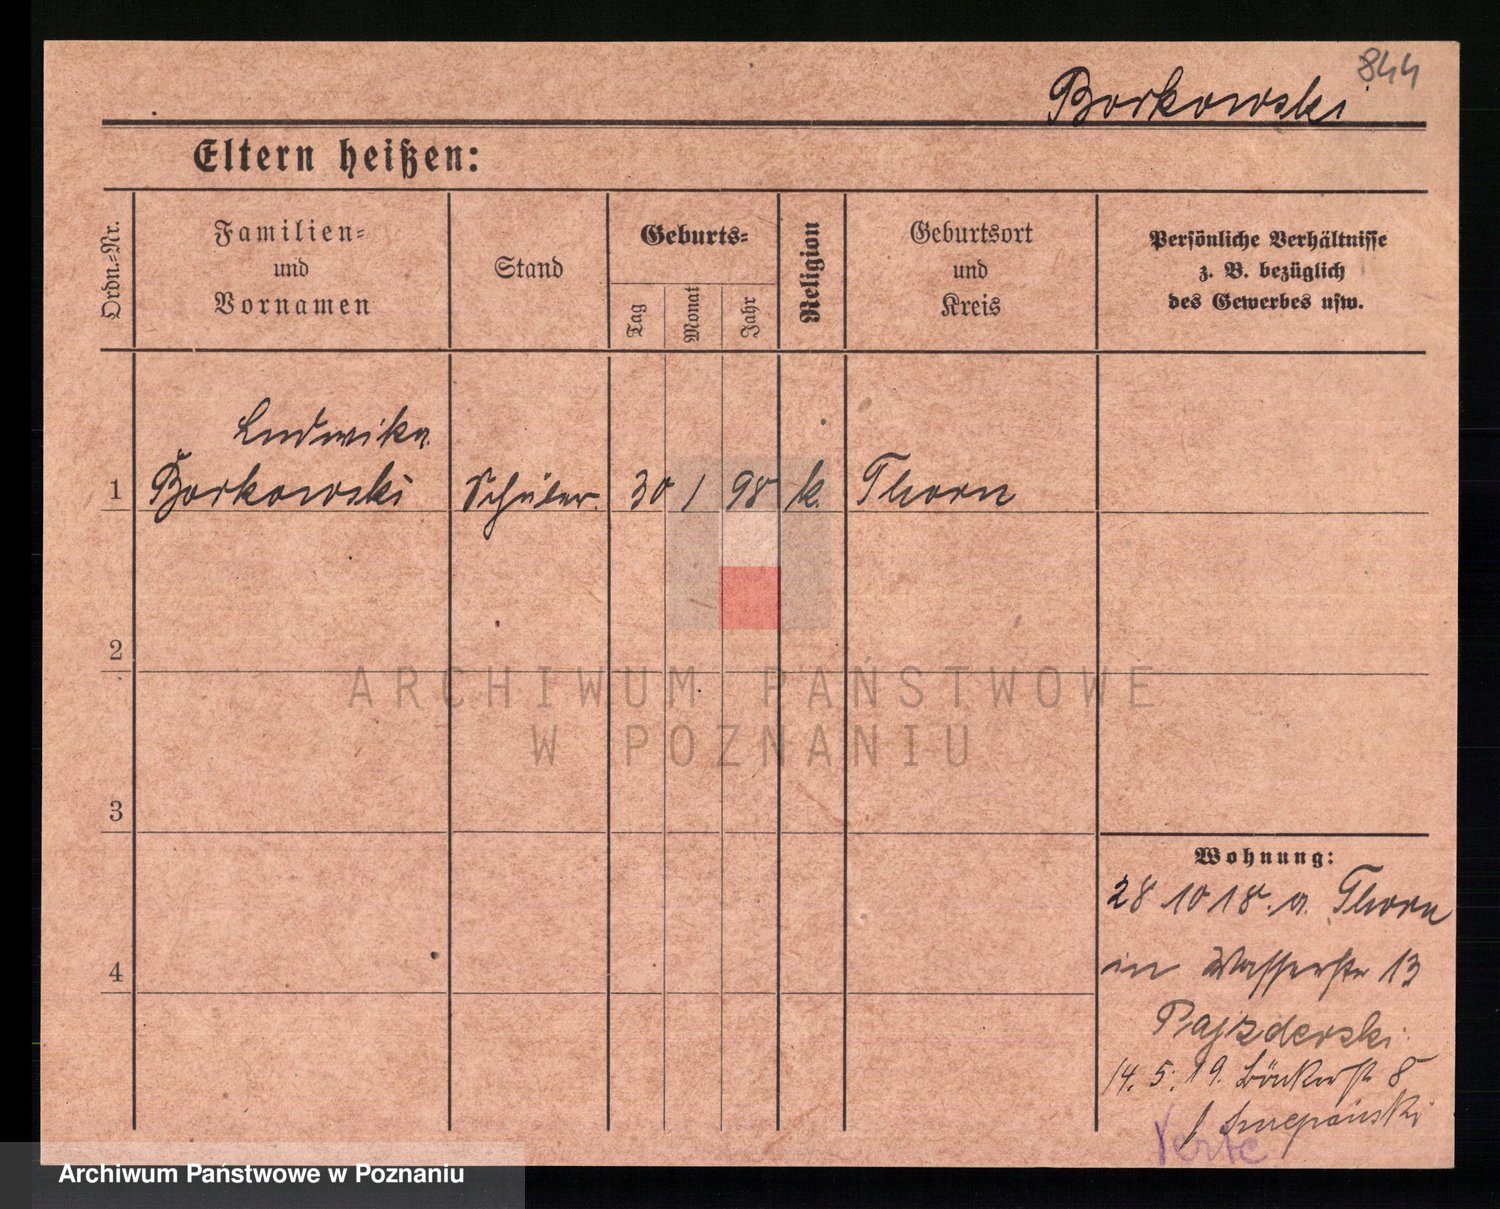 844
Borkowski
Eltern heißen:
Ordn.-Nr.
Familien-
und
Vornamen
Stand
Geburts-
Tag
Monat
Jahr
Religion
Geburtsort
und
Kreis
Persönliche Verhältnisse
z. B. bezüglich
des Gewerbes usw.
Ludwika
1 Borkowski Schüler. 30 1 98 k. Thorn
2
3
4
Wohnung:
28 10 18. a. Thorn
in Wasserstr 13
Pajzderski
14. 5. 19. Bäckerstr 8
ARCHIWUM PAŃSTWOWE
W POZNANIU
Archiwum Państwowe w Poznaniu